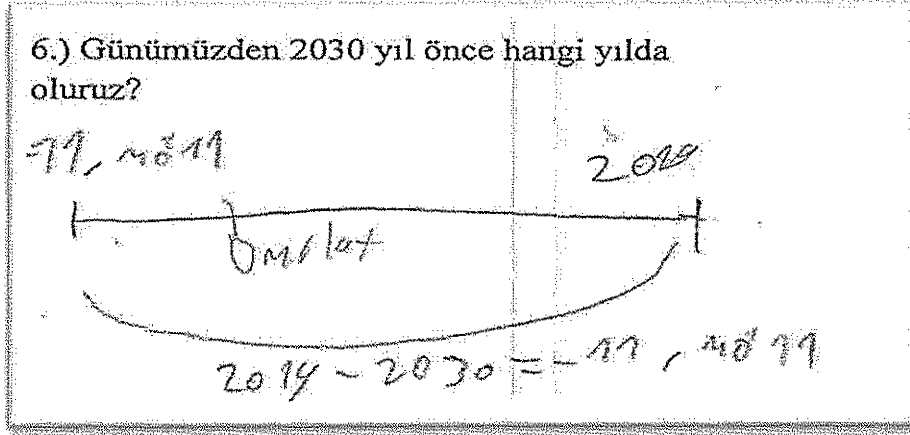 6.) Günümüzden 2030 yıl önce hangi yılda
oluruz?
-11, MÖ 11
2019
0 Milat
2019 - 2030 = -11, MÖ 11